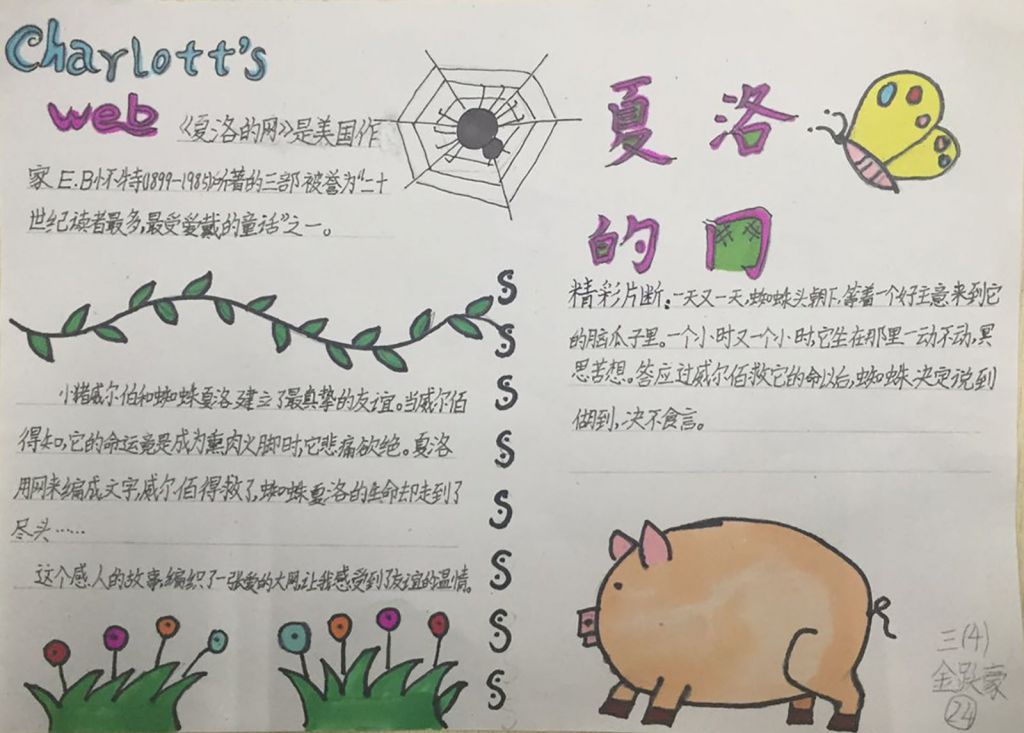 Charlott's
web
《夏洛的网》是美国作
家E.B怀特(1899-1985)所著的三部被誉为“二十
世纪读者最多,最受爱戴的童话”之一。
小猪威尔伯和蜘蛛夏洛建立了最真挚的友谊。当威尔佰
得知,它的命运竟是成为熏肉火脚时,它悲痛欲绝。夏洛
用网来编成文字,威尔佰得救了,蜘蛛夏洛的生命却走到了
尽头……
这个感人的故事,编织了一张爱的大网,让我感受到了友谊的温情。
S
S
S
S
S
S
S
S
夏洛
的网
精彩片断:一天又一天,蜘蛛头朝下,等着一个好主意来到它
的脑瓜子里。一个小时又一个小时,它坐在那里一动不动,冥
思苦想。答应过威尔佰救它的命以后,蜘蛛决定说到
做到,决不食言。
三(4)
金跃豪
24